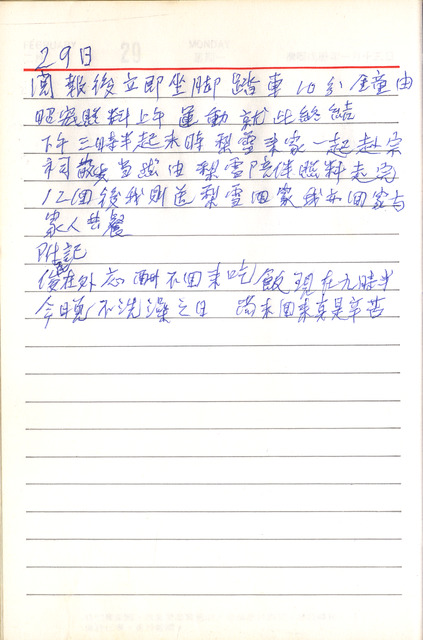 29日
29
MONDAY
閱報後立即坐脚踏車10分鐘由
昭宏照料上午運動就此終結
下午三時半起來時梨雪來家一起赴宗
祠散步當然由梨雪陪伴照料走完
12回後我則送梨雪回家我亦回家与
家人共餐
附記
俊在外忘酬不回來吃飯現在九時半
今日晚不洗澡之日 尚未回來真是辛苦